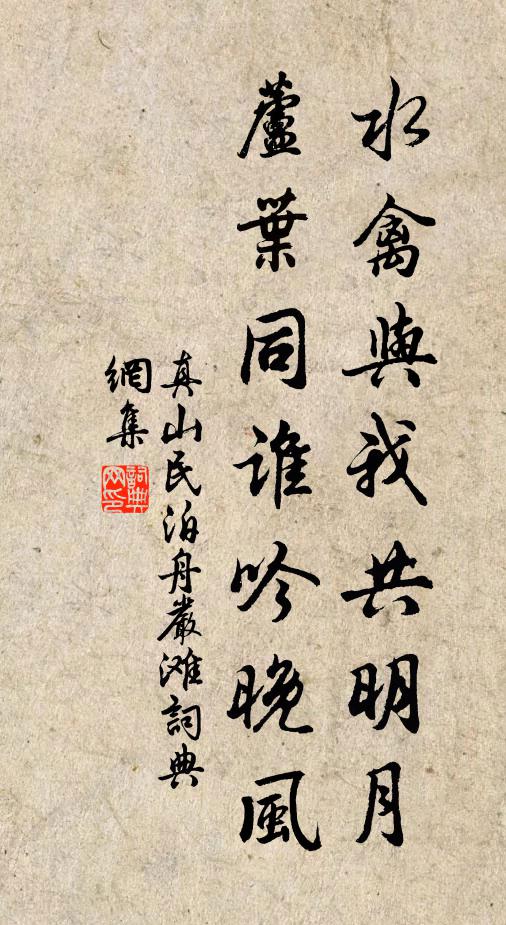 水禽與我共明月
蘆葉同誰吟晚風
真山民泊舟嚴滩詞典
網集
詞典
网印